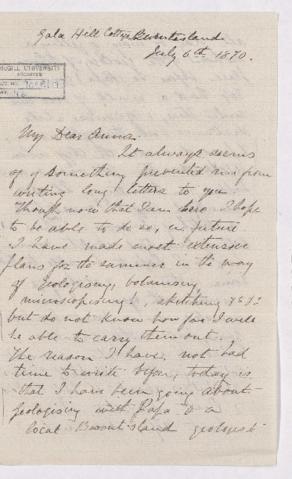 Gala Hill Cottage Burntisland
July 6th 1870.
McGILL UNIVERSITY
ARCHIVES
My Dear Anna.
It always seems
as if something prevented me from
writing long letters to you
Though now that I am here I hope
to be able to do so, in future
I have made most extensive
plans for the summer in the way
of Geologising, botanising,
microscopising!, sketching &c &c
but do not know how far I will
be able to carry them out.
The reason I have, not had
time to write before, today is
that I have been going about
Geologising with Papa & a
local Burntisland geologist